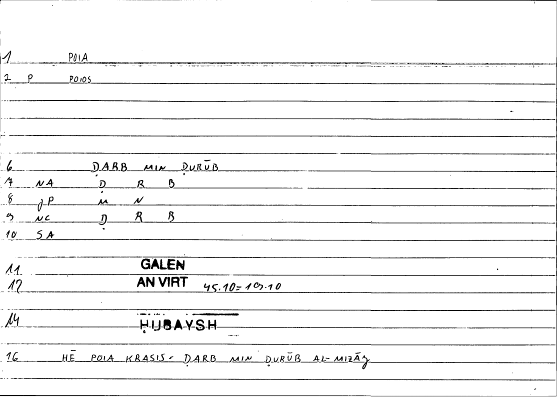 1 POIA
2 P POIOS
6 ḌARB MIN ḌURŪB
7 NA Ḍ R B
8 JP M N
9 NC Ḍ R B
10 SA
11 GALEN
12 AN VIRT
14 ḤUBAYSH
16 HĒ POIA KRASIS - ḌARB MIN ḌURŪB AL-MIZĀJ